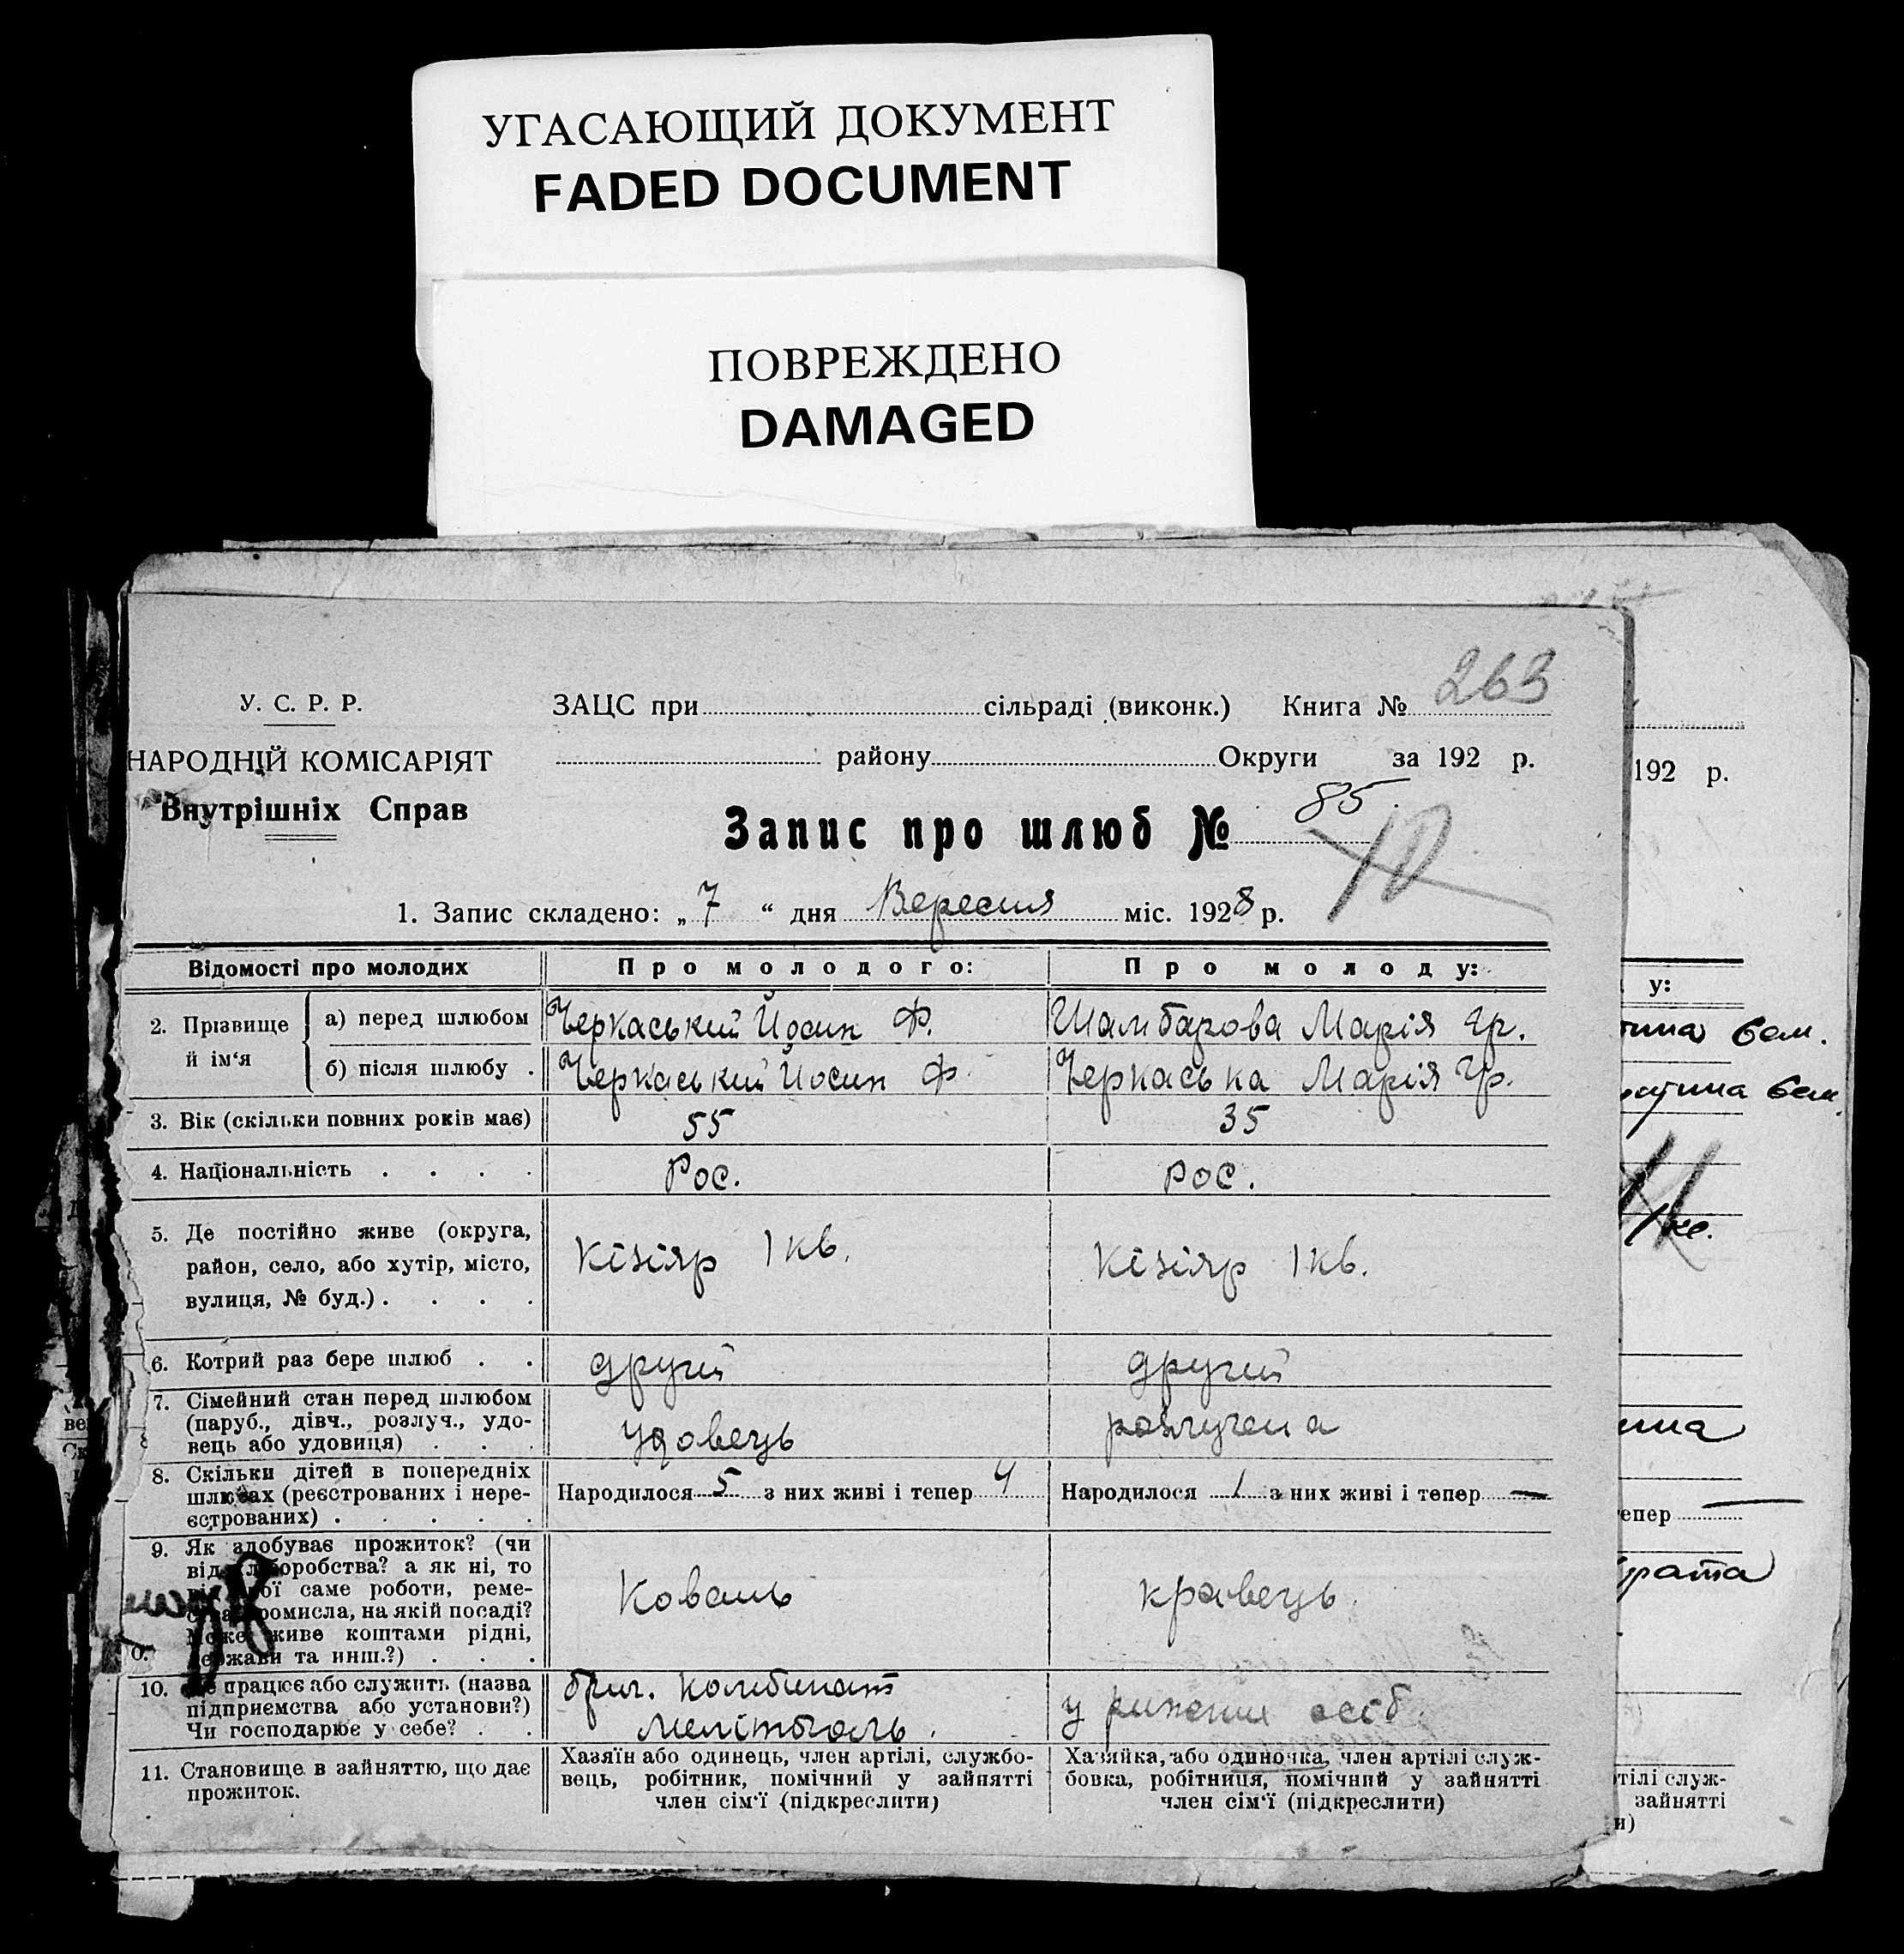 УГАСАЮЩИЙ ДОКУМЕНТ
FADED DOCUMENT
ПОВРЕЖДЕНО
DAMAGED
263
У. С. Р. Р. ЗАЦС при сільраді (виконк.) Книга №
НАРОДНІЙ КОМІСАРІЯТ району Округи за 192 р.
192 р.
Внутрішніх Справ
Запис про шлюб № 85.
10
1. Запис складено: „7“ дня Вересня міс. 1928 р.
Відомості про молодих Про молодого: Про молоду:
у:
2. Прізвище й ім‘я
а) перед шлюбом Черкаський Йосип Ф. Шамбарова Марія Гр.
б) після шлюбу . Черкаський Йосип Ф. Черкаська Марія Гр.
3. Вік (скільки повних років має) 55 35
4. Національність . . . . Рос. рос.
5. Де постійно живе (округа,
район, село, або хутір, місто,
вулиця, № буд.) . . . .
Кізіяр 1 кв. Кізіяр 1 кв.
6. Котрий раз бере шлюб . . другий другий
7. Сімейний стан перед шлюбом
(паруб., дівч., розлуч., удо-
вець або удовиця) . . .
удовець розлучена
8. Скільки дітей в попередніх
шлюбах (реєстрованих і нере-
єстрованих) . . . . .
Народилося 5 з них живі і тепер 4 Народилося 1 з них живі і тепер —
епер —
9. Як здобуває прожиток? (чи
від хліборобства? а як ні, то
від якої саме роботи, реме-
ства промисла, на якій посаді?
Може живе коштами рідні,
держави та инш.?) . . .
Коваль кравець
10. Де працює або служить (назва
підприємства або установи?)
Чи господарює у себе? . .
комбинат
Мелітополь. у осіб
11. Становище в зайняттю, що дає
прожиток.
Хазяїн або одинець, член аргілі, службо-
вець, робітник, помічний у зайнятті
член сім‘ї (підкреслити)
Хазяйка, або одиночка, член артілі служ-
бовка, робітниця, помічний у зайнятті
член сім‘ї (підкреслити)
тілі служ-
зайнятті
и)